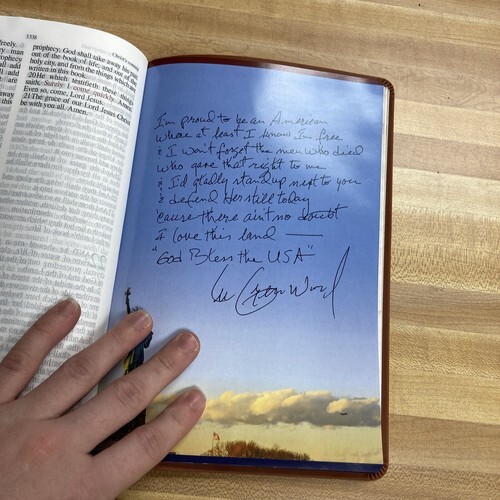 3338
prophecy, God shall take away his part
out of the book of life, and out of the
holy city, and from the things which are
written in this book.
20He which testifieth these things
saith, Surely I come quickly. Amen.
Even so, come, Lord Jesus.
21The grace of our Lord Jesus Christ
be with you all. Amen.
I'm proud to be an American
where at least I know I'm free
& I won't forget the men who died
who gave that right to me
& I'd gladly stand up next to you
& defend Her still today
'cause there ain't no doubt
I love this land —
"God Bless the USA"
Lee Greenwood